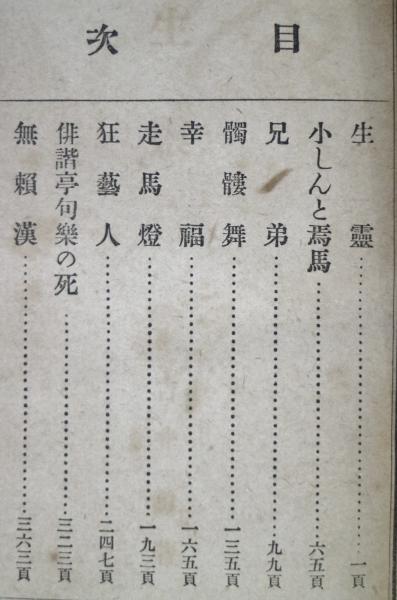 目次
生靈……一頁
小しんと焉馬……六五頁
兄弟……九九頁
髑髏舞……一三五頁
幸福……一六五頁
走馬燈……一九三頁
狂藝人……二四七頁
俳諧亭句樂の死……三二三頁
無賴漢……三六三頁